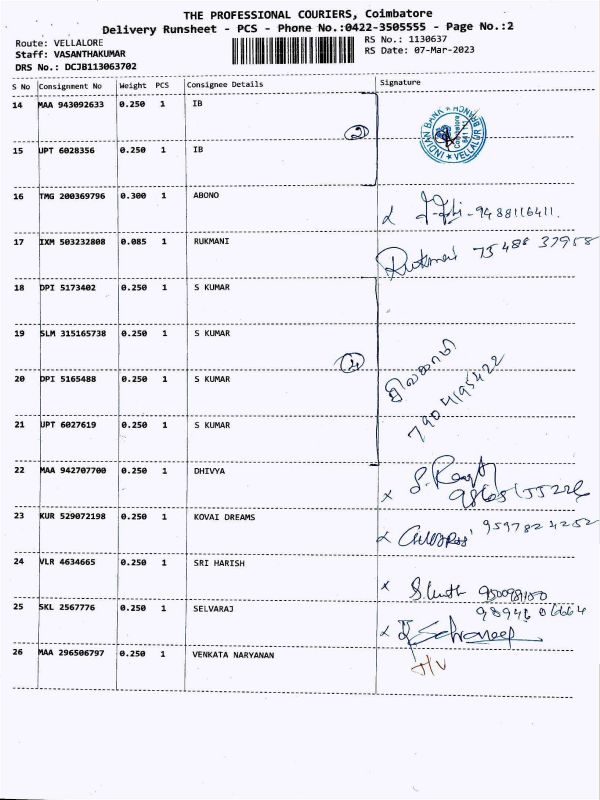 THE PROFESSIONAL COURIERS, Coimbatore
Delivery Runsheet - PCS - Phone No.:0422-3505555 - Page No.:2
Route: VELLALORE RS No.: 1130637
Staff: VASANTHAKUMAR RS Date: 07-Mar-2023
DRS No.: DCJB113063702
S No Consignment No Weight PCS Consignee Details Signature
14 MAA 943092633 0.250 1 IB
2
INDIAN BANK VELLALUR BRANCH
15 UPT 6028356 0.250 1 IB
16 TMG 200369796 0.300 1 ABONO
9488116411.
17 IXM 503232808 0.085 1 RUKMANI
Rukmani 75488 37958
18 DPI 5173402 0.250 1 S KUMAR
19 SLM 315165738 0.250 1 S KUMAR
4
20 DPI 5165488 0.250 1 S KUMAR
7904195422
21 UPT 6027619 0.250 1 S KUMAR
22 MAA 942707700 0.250 1 DHIVYA
x
23 KUR 529072198 0.250 1 KOVAI DREAMS
9597824252
24 VLR 4634665 0.250 1 SRI HARISH
x
25 SKL 2567776 0.250 1 SELVARAJ
98946 06664
26 MAA 296506797 0.250 1 VENKATA NARYANAN